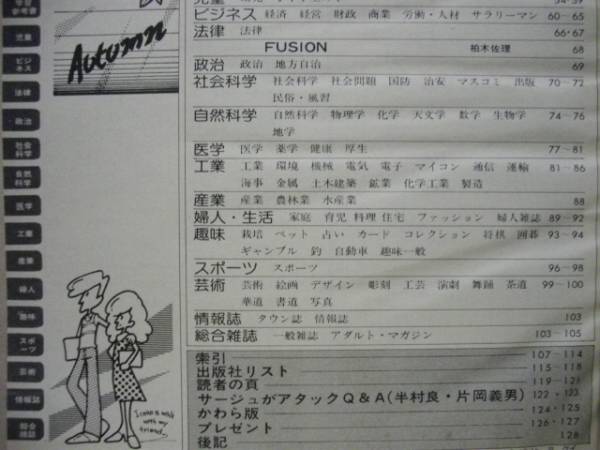 学習
参考書
児童
ビジ
ネス
法律
政治
社会
科学
自然
科学
医学
工業
産業
婦人
趣味
スポ
ーツ
芸術
情報誌
総合
雑誌
Autumn
I can a walk
with my
friend
54-59
ビジネス 経済 経営 財政 商業 労働・人材 サラリーマン 60-65
法律 法律 66・67
FUSION 柏木佐理 68
政治 政治 地方自治 69
社会科学 社会科学 社会問題 国防 治安 マスコミ 出版 70-72
民俗・風習
自然科学 自然科学 物理学 化学 天文学 数学 生物学 74-76
地学
医学 医学 薬学 健康 厚生 77-81
工業 工業 環境 機械 電気 電子 マイコン 通信 運輸 81-86
海事 金属 土木建築 鉱業 化学工業 製造
産業 産業 農林業 水産業 88
婦人・生活 家庭 育児 料理 住宅 ファッション 婦人雑誌 89-92
趣味 栽培 ペット 占い カード コレクション 将棋 囲碁 93-94
ギャンブル 釣 自動車 趣味一般
スポーツ スポーツ 96-98
芸術 芸術 絵画 デザイン 彫刻 工芸 演劇 舞踊 茶道 99-100
華道 書道 写真
情報誌 タウン誌 情報誌 103
総合雑誌 一般雑誌 アダルト・マガジン 103-105
索引 107-114
出版社リスト 115-118
読者の頁 119-121
サージュがアタックQ&A(半村良・片岡義男) 122・123
かわら版 124・125
プレゼント 126・127
後記 128